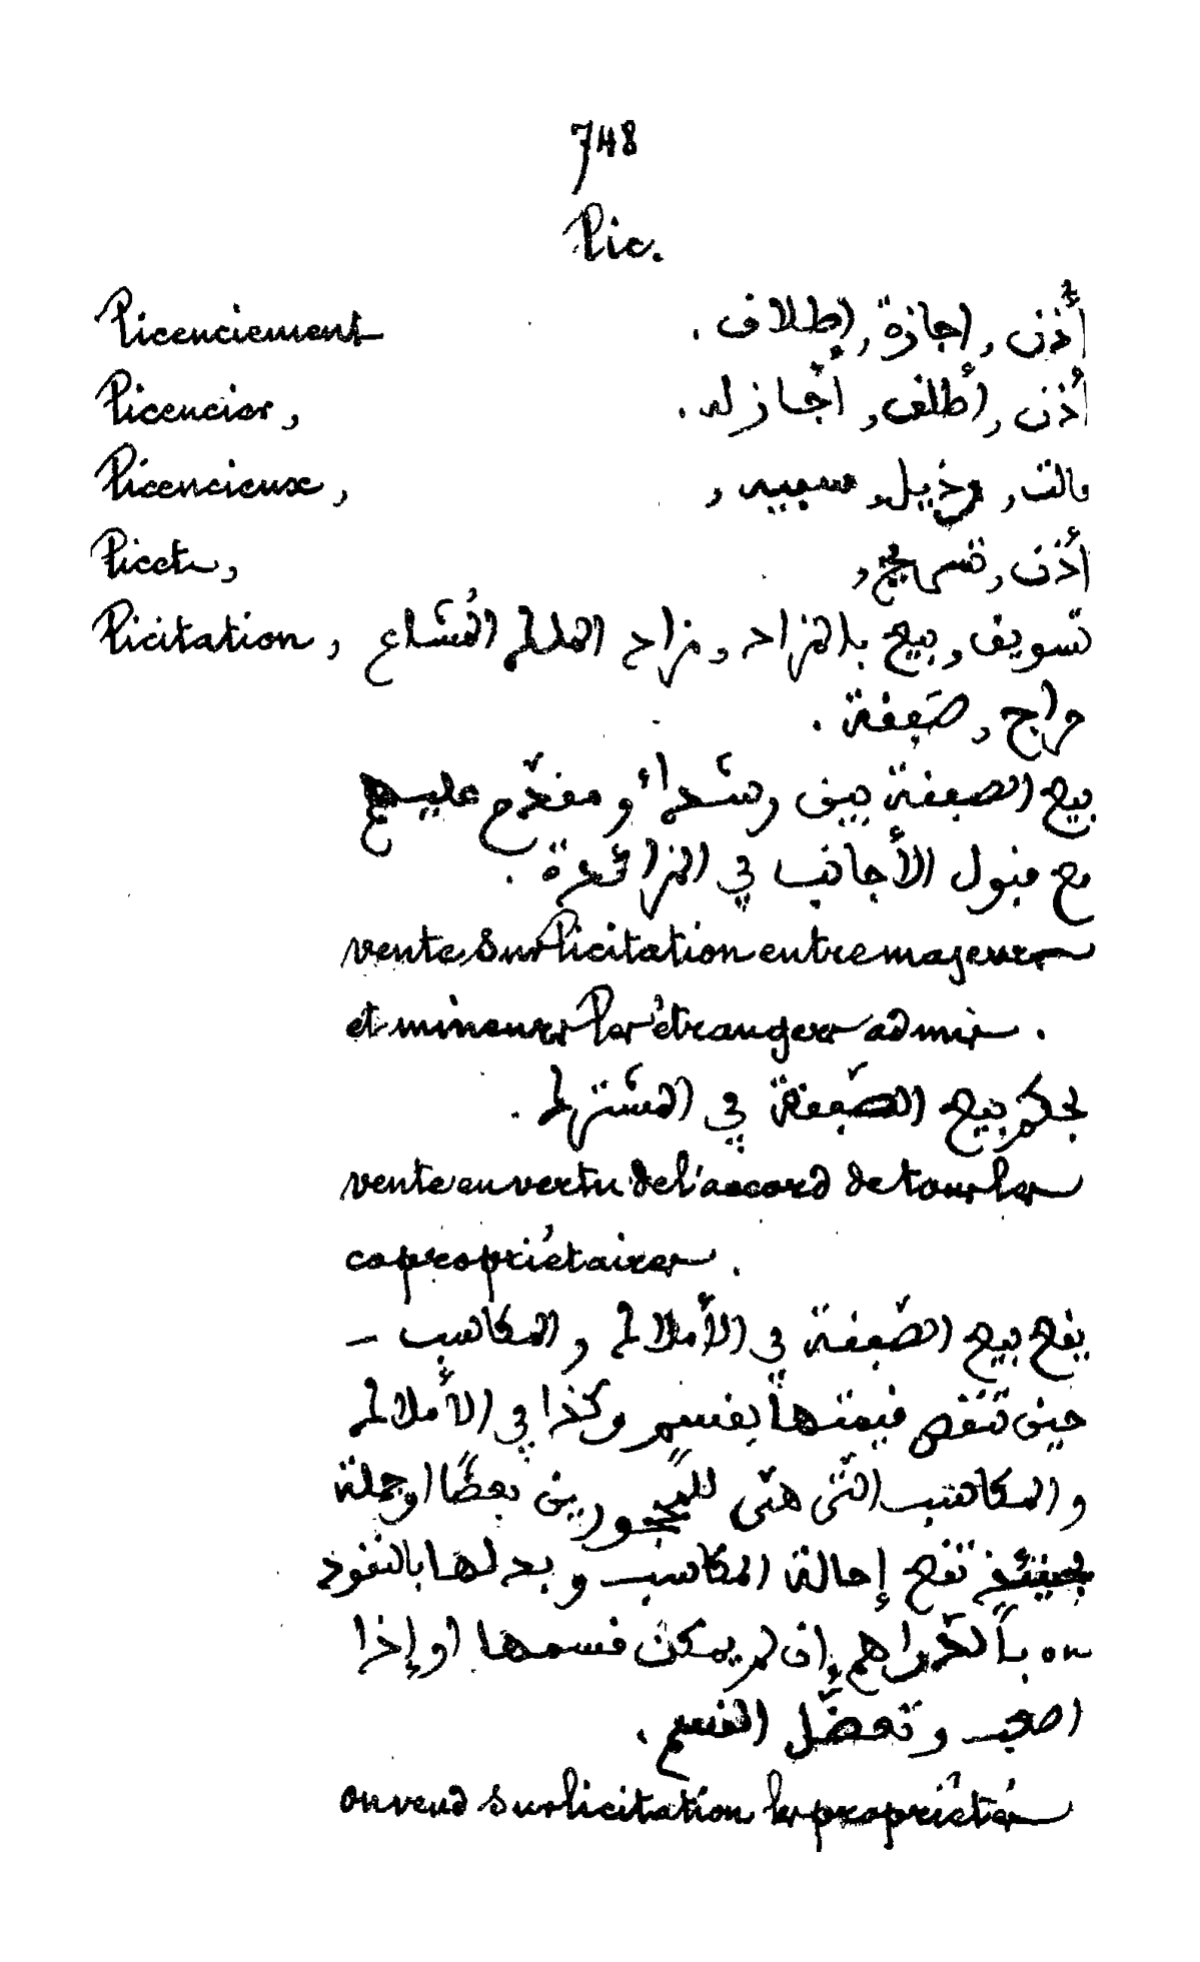 748
Lic.
Licenciement أذن, إجازة, إطلاق.
Licencier, أذن, أطلق, أجاز له.
Licencieux, سبيه,
Licet, أذن, تسريح,
Licitation, تسويق, بيع بالمزاد, مزاد الملك المشاع
حراج, صفقة.
بيع الصفقة بين رشداء و مقدم عليهم
مع قبول الأجانب في المزائدة.
vente sur licitation entre majeurs
et mineurs les étrangers admis.
بحكم بيع الصفقة في المشترك.
vente en vertu de l'accord de tous les
copropriétaires.
يقع بيع الصفقة في الأملاك و المكاسب -
حين تنقص قيمتها بقسم وكذا في الأملاك
و المكاسب التي هي للمحجورين بعضًا او جملة
فحينئذ تقع إحالة المكاسب و بدلها بالنقود
ou بالدراهم إن لم يمكن قسمها او إذا
اصعب و تعضل القسم.
on vend sur licitation les propriétés